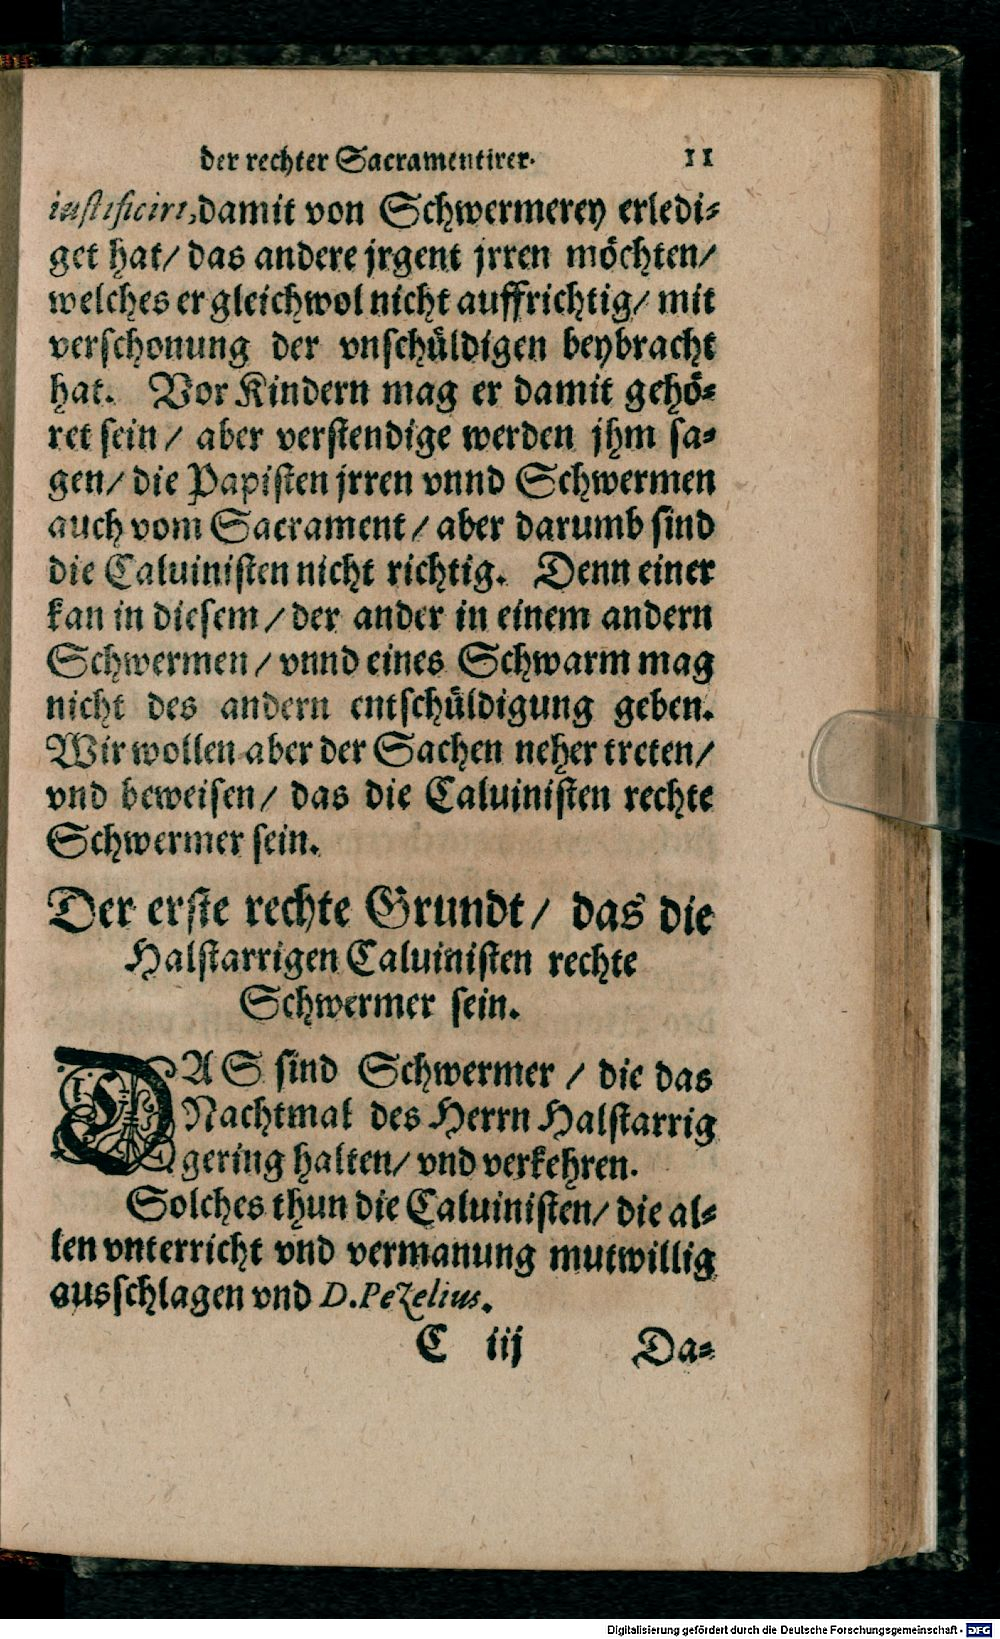 der rechter Sacramentirer. 11
iustificirt, damit von Schwermerey erledi⸗
get hat/ das andere jrgent jrren möchten/
welches er gleichwol nicht auffrichtig/ mit
verschonung der vnschüldigen beybracht
hat. Vor Kindern mag er damit gehö⸗
ret sein/ aber verstendige werden jhm sa⸗
gen/ die Papisten jrren vnnd Schwermen
auch vom Sacrament/ aber darumb sind
die Caluinisten nicht richtig. Denn einer
kan in diesem/ der ander in einem andern
Schwermen/ vnnd eines Schwarm mag
nicht des andern entschüldigung geben.
Wir wollen aber der Sachen neher treten/
vnd beweisen/ das die Caluinisten rechte
Schwermer sein.
Der erste rechte Grundt/ das die
Halstarrigen Caluinisten rechte
Schwermer sein.
DAS sind Schwermer/ die das
Nachtmal des Herrn Halstarrig
gering halten/ vnd verkehren.
Solches thun die Caluinisten/ die al⸗
len vnterricht vnd vermanung mutwillig
ausschlagen vnd D. Pezelius.
C iij Da⸗
Digitalisierung gefördert durch die Deutsche Forschungsgemeinschaft - DFG